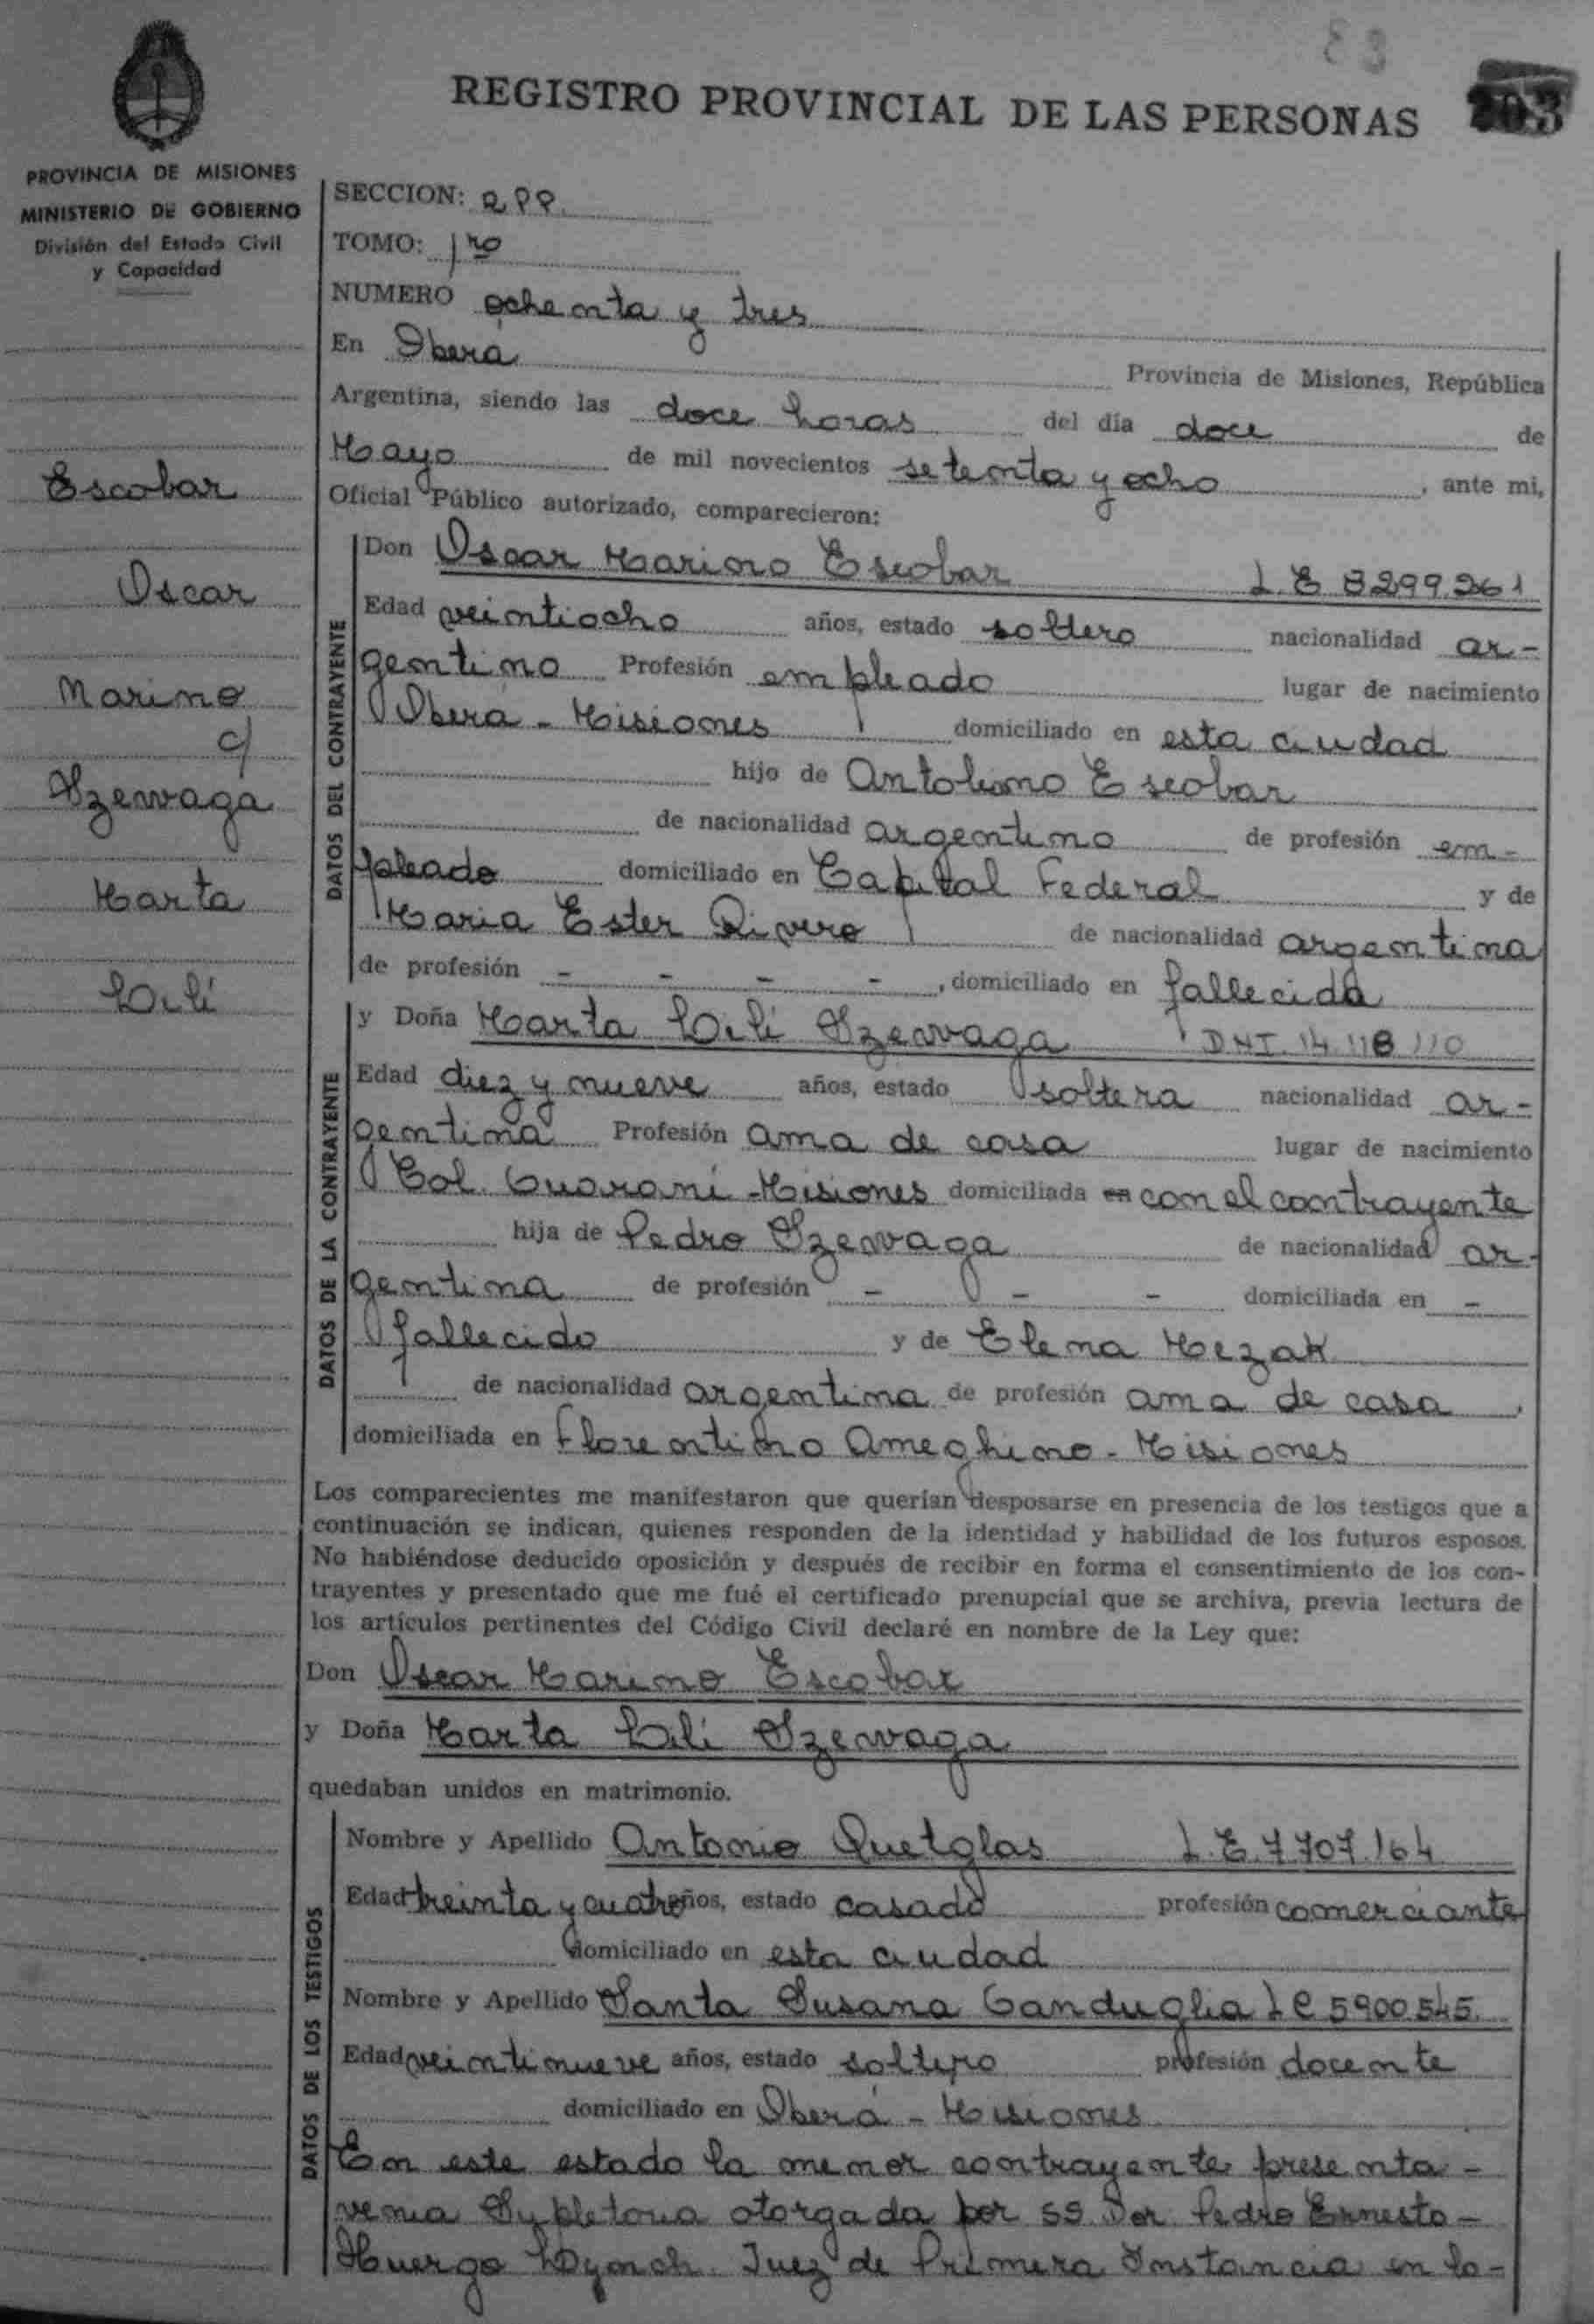 83
REGISTRO PROVINCIAL DE LAS PERSONAS
203
PROVINCIA DE MISIONES
MINISTERIO DE GOBIERNO
División del Estado Civil
y Capacidad
Escobar
Oscar
Marino
c/
Szewaga
Marta
Lilí
SECCION:
TOMO: 1ro
NUMERO ochenta y tres
En Oberá Provincia de Misiones, República
Argentina, siendo las doce horas del día doce de
Mayo de mil novecientos setenta y ocho, ante mi,
Oficial Público autorizado, comparecieron:
DATOS DEL CONTRAYENTE
Don Oscar Marino Escobar L E 8299.261
Edad veintiocho años, estado soltero nacionalidad ar-
gentino Profesión empleado lugar de nacimiento
Oberá - Misiones domiciliado en esta ciudad
hijo de Antolino Escobar
de nacionalidad argentino de profesión em-
pleado domiciliado en Capital Federal y de
Maria Ester Rivero de nacionalidad argentina
de profesión - - - -, domiciliado en fallecida
DATOS DE LA CONTRAYENTE
y Doña Marta Lilí Szewaga DNI. 14.118.110
Edad diez y nueve años, estado soltera nacionalidad ar-
gentina Profesión ama de casa lugar de nacimiento
Col. Guaraní - Misiones domiciliada en con el contrayente
hija de Pedro Szewaga de nacionalidad ar-
gentina de profesión - - - domiciliada en -
fallecido y de Elena Mezak
de nacionalidad argentina de profesión ama de casa,
domiciliada en Florentino Ameghino - Misiones
Los comparecientes me manifestaron que querían desposarse en presencia de los testigos que a
continuación se indican, quienes responden de la identidad y habilidad de los futuros esposos.
No habiéndose deducido oposición y después de recibir en forma el consentimiento de los con-
trayentes y presentado que me fué el certificado prenupcial que se archiva, previa lectura de
los artículos pertinentes del Código Civil declaré en nombre de la Ley que:
Don Oscar Marino Escobar
y Doña Marta Lilí Szewaga
quedaban unidos en matrimonio.
DATOS DE LOS TESTIGOS
Nombre y Apellido Antonio Quetglas L.E. 7707.164
Edad treinta y cuatro años, estado casado profesión comerciante
domiciliado en esta ciudad
Nombre y Apellido Santa Susana Ganduglia L C 5900.545.
Edad veintinueve años, estado soltero profesión docente
domiciliado en Oberá - Misiones
En este estado la menor contrayente presenta -
venia Supletoria otorgada por SS. Dor Pedro Ernesto -
Huergo Juez de Primera Instancia en lo-